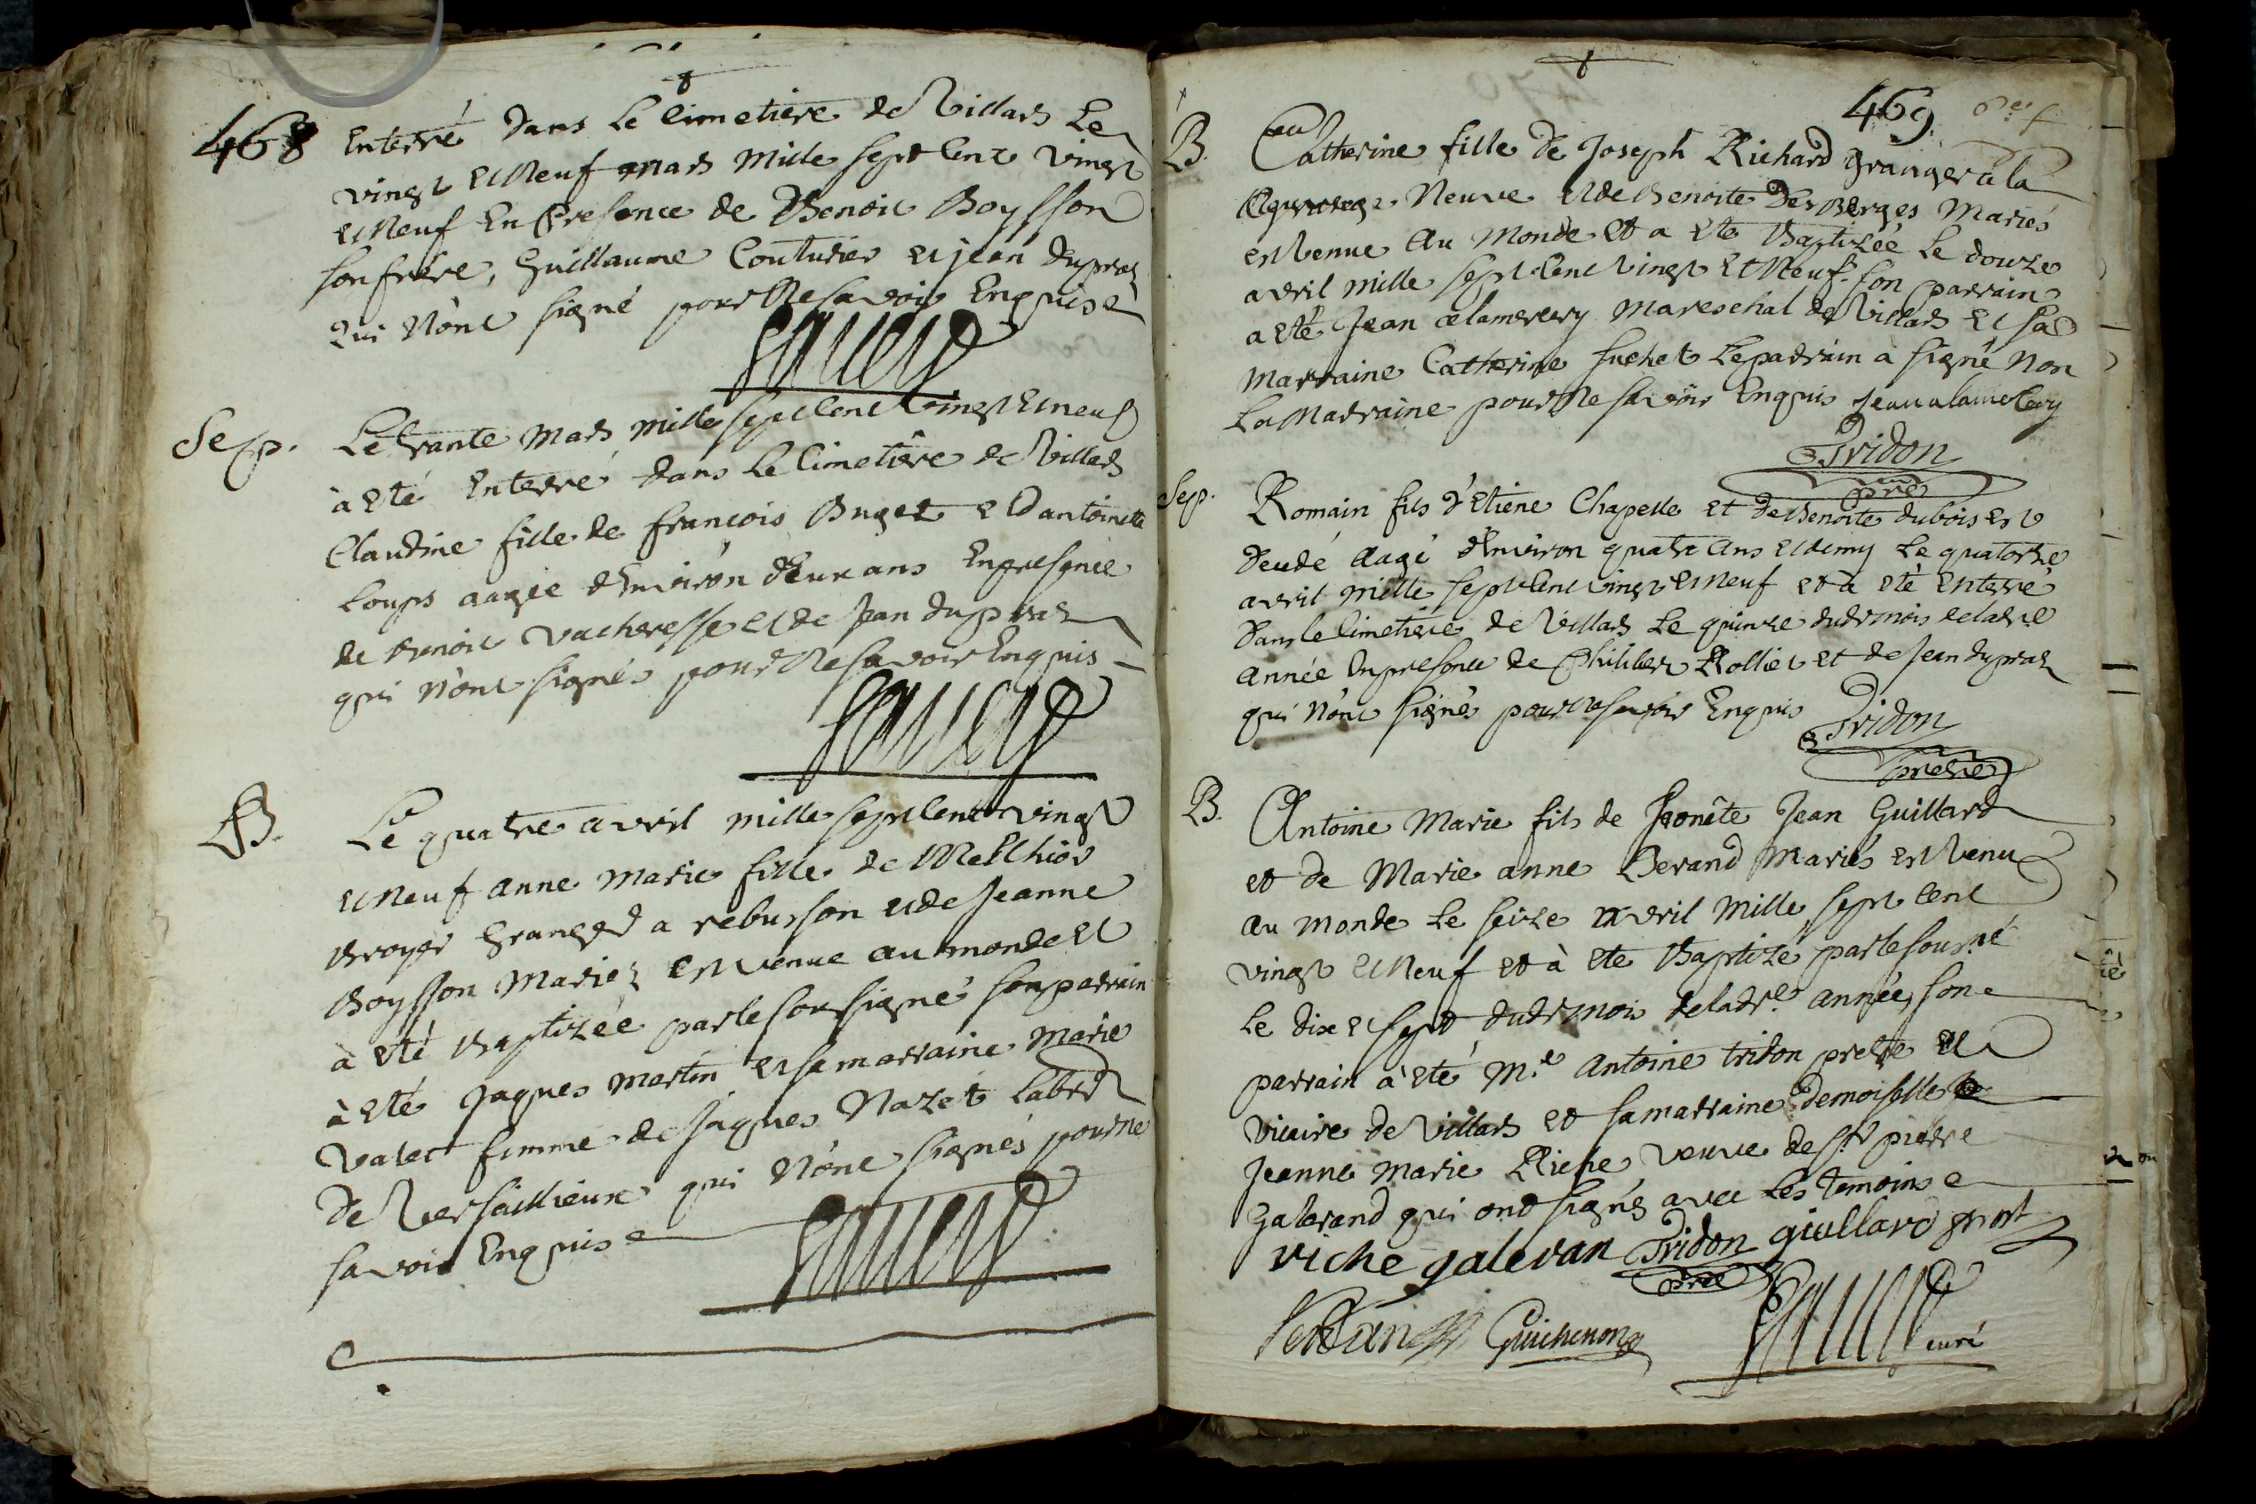 468
enterré dans le cimetiere de Villars le
vingt et neuf mars mille sept cent vingt
et neuf en presence de Benoit Boysson
son frère, Guillaume Couturier et jean dupras
qui n'ont signé pour ne savoir enquis
Sep.
Le trante mars mille sept cent vingt et neuf
à eté enterré dans le cimetière de Villars
Claudine fille de francois Buget et d'antoinette
Loups aagée d'environ deux ans en presence
de Benoit vacheresse et de Jean dupras
qui n'ont signés pour ne savoir enquis
B.
Le quatre avril mille sept cent vingt
et neuf anne marie fille de Melchior
Broyer granger a rebusson et de Jeanne
Boysson mariez est venue au monde et
à eté Baptizée par le soussigné son parrain
à eté Jaques martin et sa marraine marie
valect femme de Jaques Nazet labr
de Versaillieux qui n'ont signés pour ne
savoir enquis
469
B.
Catherine fille de Joseph Richard granger a la
Neuve et de Benoite Desberges mariés
est venue au monde et a eté Baptizée le douze
avril mille sept cent vingt et neuf. son parrain
a eté Jean alamercery mareschal de Villars et sa
marraine Catherine suchet le parrain a signé non
la marraine pour ne savoir enquis Jean alamercery
Tridon
pre
Sep.
Romain fils d'Etiene Chapelle et de Benoite dubois est
decedé aagé d'environ quatre ans et demy le quatorze
avril mille sept cent vingt et neuf et à eté enterré
dans le cimetiere de Villars le quinze dudt mois de ladte
année en presence de Philibert Rollier et de Jean dupras
qui n'ont signés pour ne savoir enquis
Tridon
pretre
B.
Antoine Marie fils de honête Jean Guillard
et de Marie anne Berand mariés est venu
au monde le seize avril mille sept cent
vingt et neuf et à ete Baptizé par le sousné
le dix et sept dudt mois de ladte année, son
parrain à eté Me Antoine tridon pretre et
vicaire de Villars et sa marraine demoiselle
Jeanne Marie Riche veuve de sr pierre
galerand qui ont signés avec les temoins
riche galeran Tridon giullard
pre
Guichenon
curé